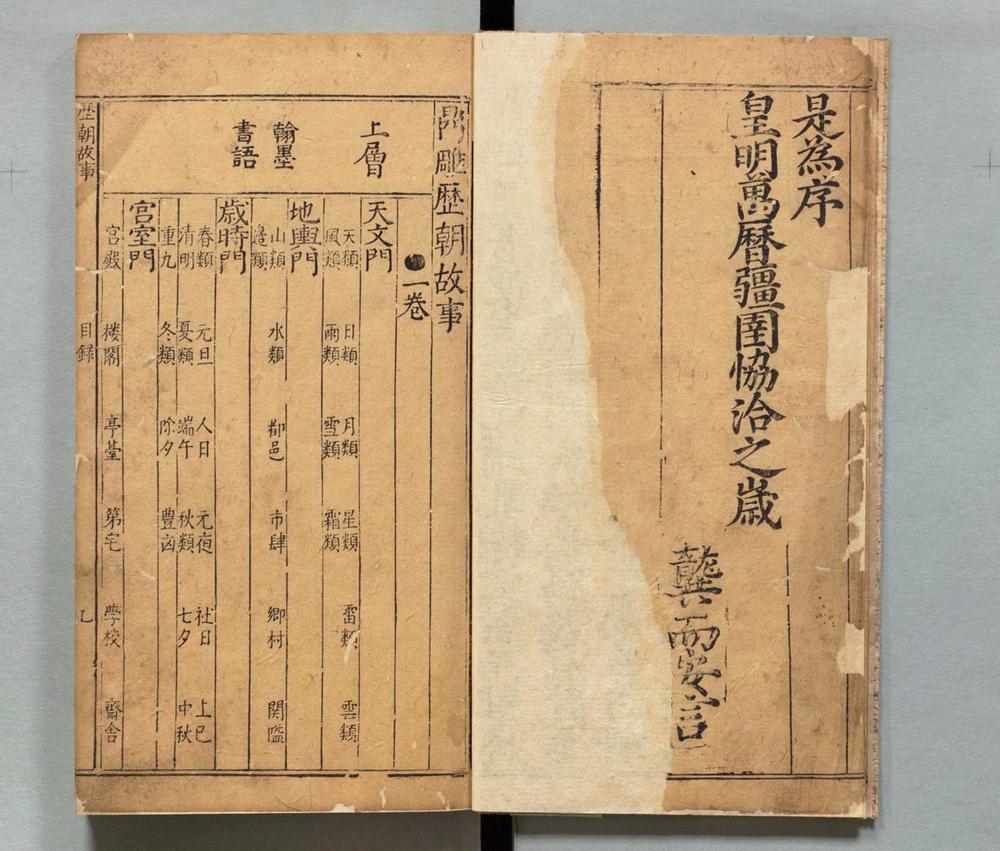 是為序
皇明萬曆疆圉恊洽之嵗
龔而安言
鼎雕歴朝故事
一卷
上層
翰墨
書語
天文門
天類 日類 月類 星類 雷類 雲類
風類 雨類 雪類 霜類
地輿門
山類 水類 都邑 市肆 鄉村 関隘
邊類
嵗時門
春類 元旦 人日 元夜 社日 上巳
清明 夏類 端午 秋類 七夕 中秋
重九 冬類 除夕 豊凶
宮室門
宮殿 楼閣 亭臺 第宅 學校 齋舍
歴朝故事 目録 乙